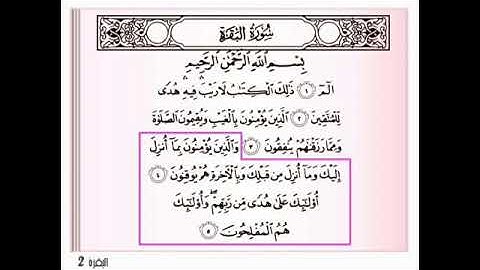 سُورَةُ البَقَرَةِ
بِسْمِ ٱللَّهِ ٱلرَّحْمَٰنِ ٱلرَّحِيمِ
الٓمٓ ۝١ ذَٰلِكَ ٱلْكِتَٰبُ لَا رَيْبَ فِيهِ هُدًى
لِّلْمُتَّقِينَ ۝٢ ٱلَّذِينَ يُؤْمِنُونَ بِٱلْغَيْبِ وَيُقِيمُونَ ٱلصَّلَوٰةَ
وَمِمَّا رَزَقْنَٰهُمْ يُنفِقُونَ ۝٣ وَٱلَّذِينَ يُؤْمِنُونَ بِمَآ أُنزِلَ
إِلَيْكَ وَمَآ أُنزِلَ مِن قَبْلِكَ وَبِٱلْءَاخِرَةِ هُمْ يُوقِنُونَ ۝٤
أُو۟لَٰٓئِكَ عَلَىٰ هُدًى مِّن رَّبِّهِمْ ۖ وَأُو۟لَٰٓئِكَ
هُمُ ٱلْمُفْلِحُونَ ۝٥
البقرة 2